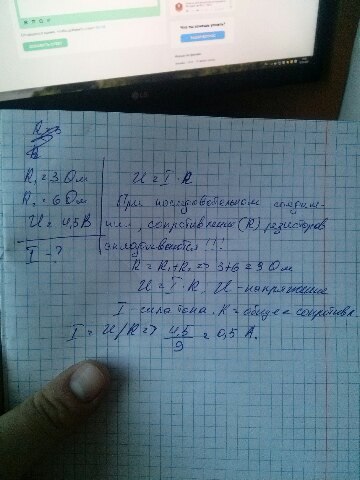 R₁ = 3 Ом
R₂ = 6 Ом
U = 4,5 В
I - ?
U = I · R
При последовательном соедине-
нии, сопротивления (R) резисторов
складываются!!!
R = R₁ + R₂ => 3+6 = 9 Ом
U = I · R, U - напряжение
I - сила тока. R = общее сопротивл.
I = U/R => 4,5/9 = 0,5 А.
LG